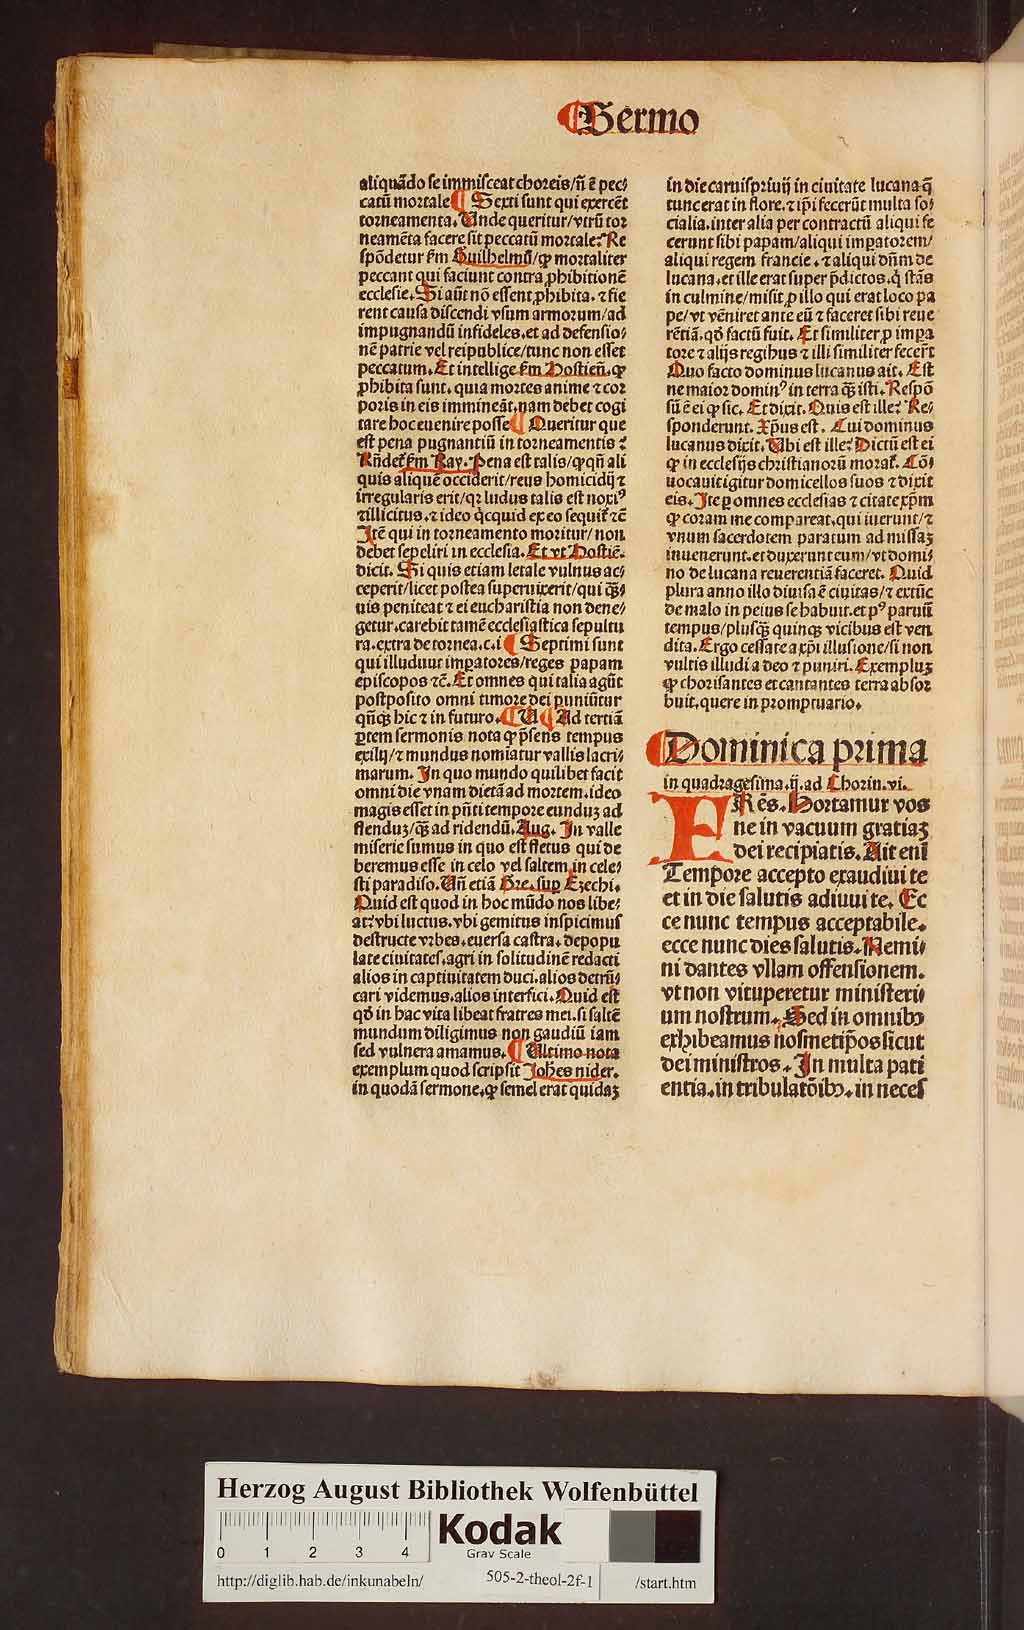 Sermo
aliquādo se immisceat choreis/ñ ē pec⸗
catū mortale ¶ Sexti sunt qui exercēt
torneamenta. Unde queritur/vtrū tor
neamēta facere sit peccatū mortale? Re
spōdetur ẜm Guilhelmū/ꝙ mortaliter
peccant qui faciunt contra ꝓhibitionē
ecclesie. Si aūt nō essent ꝓhibita. ⁊ fie
rent causa discendi vsum armorum/ad
impugnandū infideles. et ad defensio⸗
nē patrie vel reipublice/tunc non esset
peccatum. Et intellige ẜm Hostien̄. ꝙ
ꝓhibita sunt. quia mortes anime ⁊ cor
poris in eis immineāt. nam debet cogi
tare hoc euenire posse ¶ Queritur que
est pena pugnantiū in torneamentis?
Rn̄det ẜm Ray. Pena est talis/ꝙ qn̄ ali
quis aliquē occiderit/reus homicidij ⁊
irregularis erit/qꝛ ludus talis est noxiꝰ
⁊ illicitus. ⁊ ideo q̇cquid ex eo sequit̉ ⁊c̄
Itē qui in torneamento moritur/non
debet sepeliri in ecclesia. Et vt Hostiē.
dicit. Si quis etiam letale vulnus ac⸗
ceperit/licet postea superuixerit/qui qͣꝫ⸗
uis peniteat ⁊ ei eucharistia non dene⸗
getur. carebit tamē ecclesiastica sepultu
ra. extra de tornea. c. i ¶ Septimi sunt
qui illuduut imꝑatores/reges papam
episcopos ⁊c̄. Et omnes qui talia agūt
postposito omni timore dei puniūtur
qn̄qꝫ hic ⁊ in futuro. ¶ U ¶ Ad tertiā
ꝑtem sermonis nota ꝙ p̄sens tempus
exilij/⁊ mundus nomiatur vallis lacri⸗
marum. In quo mundo quilibet facit
omni die vnam dietā ad mortem. ideo
magis esset in pn̄ti tempore eunduꝫ ad
flenduꝫ/qͣꝫ ad ridendū. Aug. In valle
miserie sumus in quo est fletus qui de
beremus esse in celo vel saltem in cele⸗
sti paradiso. Un̄ etiā Gre. suꝑ Ezechi.
Quid est quod in hoc mūdo nos libe⸗
at? vbi luctus. vbi gemitus inspicimus
destructe vrbes. euersa castra. depopu
late ciuitates. agri in solitudinē redacti
alios in captiuitatem duci. alios detrū⸗
cari videmus. alios interfici. Quid est
qd̉ in hac vita libeat fratres mei. si saltē
mundum diligimus non gaudiū iam
sed vulnera amamus. ¶ Ultimo nota
exemplum quod scripsit Joh̄es nider.
in quodā sermone. ꝙ semel erat quidaꝫ
in die carnispriuij in ciuitate lucana q̄
tunc erat in flore. ⁊ ip̄i fecerūt multa so⸗
cialia. inter alia per contractū aliqui fe
cerunt sibi papam/aliqui imꝑatorem/
aliqui regem francie. ⁊ aliqui dn̄m de
lucana. et ille erat super p̄dictos. q̇ stās
in culmine/misit ꝓ illo qui erat loco pa
pe/vt veniret ante eū ⁊ faceret sibi reue
rētiā. qd̉ factū fuit. Et similiter ꝓ imꝑa
tore ⁊ alijs regibus ⁊ illi similiter fecer̄t
Quo facto dominus lucanus ait. Est
ne maior dominꝰ in terra qͣꝫ isti. Respō
sū ē ei ꝙ sic. Et dixit. Quis est ille? Re⸗
sponderunt. Xp̄us est. Cui dominus
lucanus dixit. Ubi est ille? Dictū est ei
ꝙ in ecclesijs christianorū morat̉. Cō⸗
uocauit igitur domicellos suos ⁊ dixit
eis. Ite ꝑ omnes ecclesias ⁊ citate xp̄m
ꝙ coram me compareat. qui iuerunt/⁊
vnum sacerdotem paratum ad missaꝫ
inuenerunt. et duxerunt eum/vt domi⸗
no de lucana reuerentiā faceret. Quid
plura anno illo diuisa ē ciuitas/⁊ ex tūc
de malo in peius se habuit. et pꝰ paruū
tempus/plusqͣꝫ quinqꝫ vicibus est ven
dita. Ergo cessate a xp̄i illusione/si non
vultis illudi a deo ⁊ puniri. Exempluꝫ
ꝙ chorisantes et cantantes terra absor
buit. quere in promptuario.
Dominica prima
in quadragesima. ij. ad Chorin. vi.
FRēs. Hortamur vos
ne in vacuum gratiaꝫ
dei recipiatis. Ait enī
Tempore accepto exaudiui te
et in die salutis adiuui te. Ec
ce nunc tempus acceptabile.
ecce nunc dies salutis. Nemi⸗
ni dantes vllam offensionem.
vt non vituperetur ministeri⸗
um nostrum. Sed in omnibꝫ
exhibeamus nosmetip̄os sicut
dei ministros. In multa pati
entia. in tribulatōibꝫ. in neces
Herzog August Bibliothek Wolfenbüttel
0 1 2 3 4
Kodak
Gray Scale
http://diglib.hab.de/inkunabeln/ 505-2-theol-2f-1 /start.htm